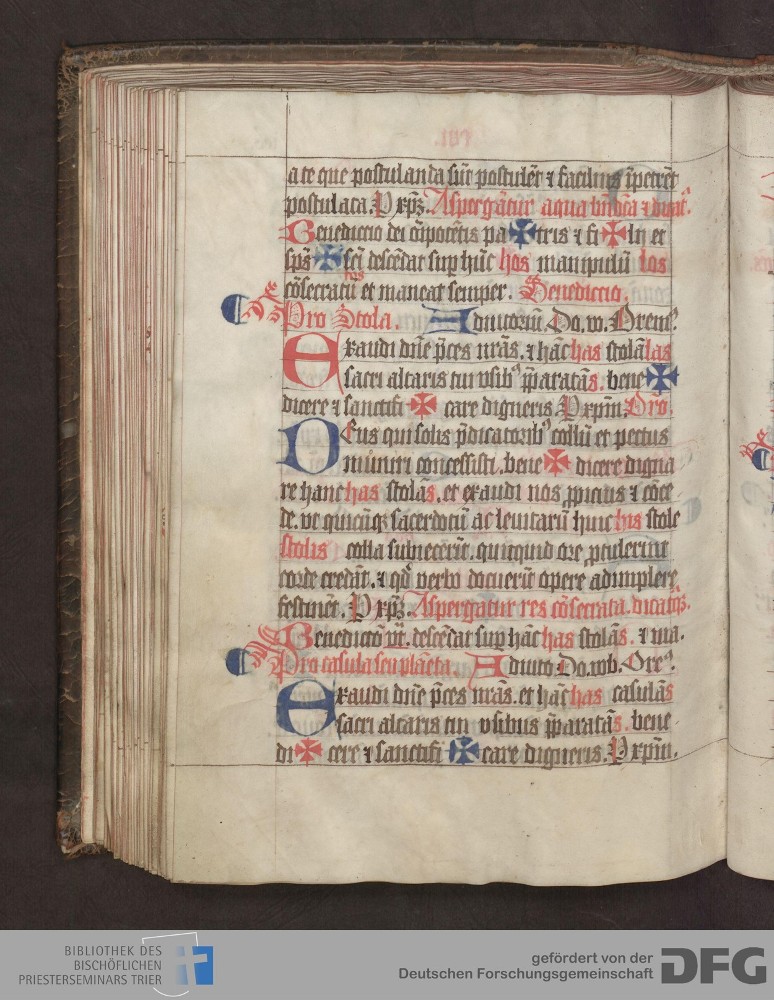 a te que postulanda sūt postulēt ⁊ facilius īpetrēt
postulata. P xp̄ꝫ. Aspergāt̄ur aqua bn̄dc̄a ⁊ dicat᷑.
Benedictio dei om̄ipotētis pa ✠ tris ⁊ fi ✠ lij et
sp̄s ✠ sc̄i descēdat sup hūc hos manipulū los
cōsecratū tos et maneat semper. Benedictio.
Pro Stola. Adiutoriū. Do. vo. Orem᷒.
Exaudi dn̄e p̄ces nr̄as. ⁊ hāc has stolā las
sacri altaris tui vsib᷒ p̄paratā s. bene ✠
dicere ⁊ sanctifi ✠ care digneris. P xp̄m. Or̄o.
Deus qui solis p̄dicatorib᷒ collū et pectus
muniri concessisti. bene ✠ dicere digna
re hanc has stolas. et exaudi nos ꝓpicius ⁊ cōce
de. vt quicūqꝫ sacerdotū ac leuitarū huic his stole
stolis colla subiecerīt. quicquid ore ꝓtulerint
corde credāt. ⁊ qd̄ verbo docuerīt opere adimplere
festinēt. P xp̄ꝫ. Aspergatur res cōsecrata. dicatqꝫ.
Benedictō vt̄. descēdat sup hāc has stolās. ⁊ ma.
Pro casula seu planeta. Adiuto. Do. vob. Ore᷒.
Exaudi dn̄e p̄ces nr̄as. et hāc has casulās
sacri altaris tui vsibus p̄paratā s. bene
di ✠ cere ⁊ sanctifi ✠ care digneris. P xp̄m.
BIBLIOTHEK DES
BISCHÖFLICHEN
PRIESTERSEMINARS TRIER
gefördert von der
Deutschen Forschungsgemeinschaft DFG